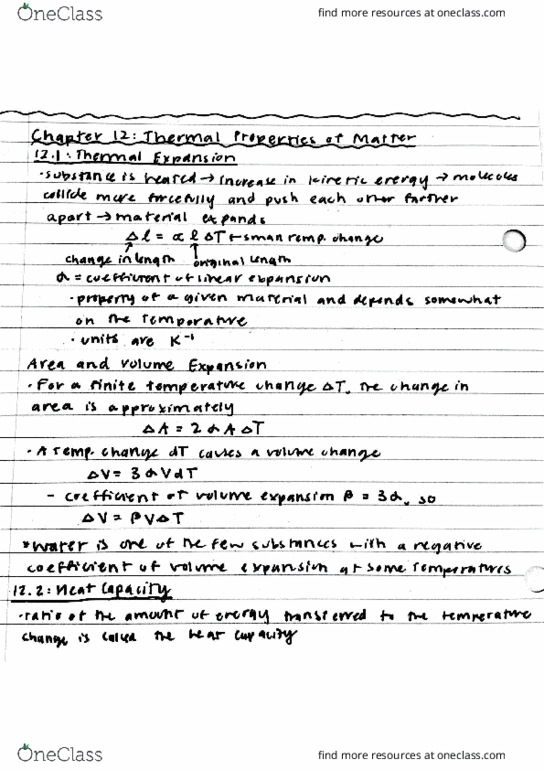 OneClass
find more resources at oneclass.com
Chapter 12: Thermal Properties of Matter
12.1: Thermal Expansion
· substance is heated → increase in kinetic energy → molecules
collide more forcefully and push each other farther
apart → material expands
Δl = αlΔT ← small temp. change
change in length original length
α = coefficient of linear expansion
· property of a given material and depends somewhat
on the temperature
· units are K⁻¹
Area and Volume Expansion
· For a finite temperature change ΔT, the change in
area is approximately
ΔA = 2αAΔT
· A temp. change dT causes a volume change
ΔV = 3αVdT
- coefficient of volume expansion β = 3α, so
ΔV = βVΔT
*Water is one of the few substances with a negative
coefficient of volume expansion at some temperatures
12.2: Heat Capacity
· ratio of the amount of energy transferred to the temperature
change is called the heat capacity
OneClass
find more resources at oneclass.com